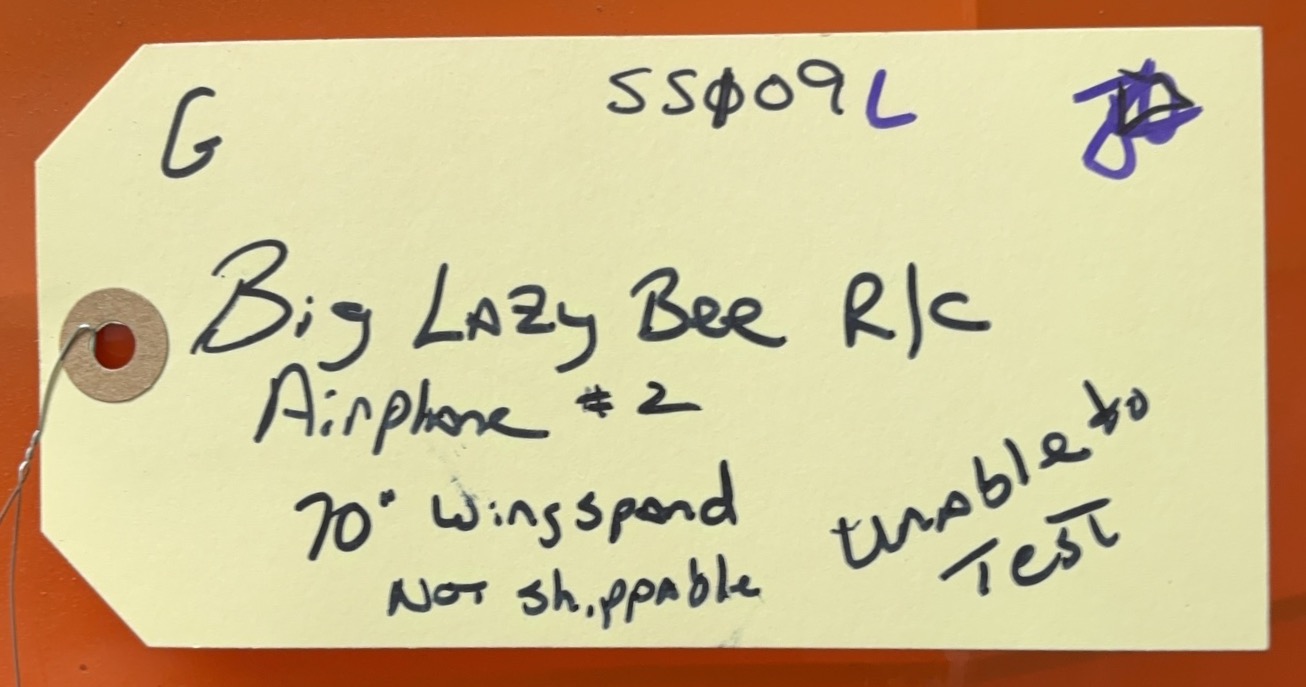 G
SSØ09L
Big Lazy Bee R/C
Airplane #2
70" Wingspand
Not shippable
unable to
Test